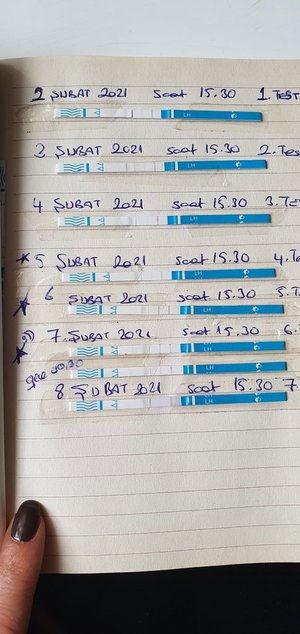 2 ŞUBAT 2021 saat 15.30 1. TEST
LH
3 ŞUBAT 2021 saat 15.30 2. Te
LH
4 ŞUBAT 2021 saat 15.30 3. Te
LH
5 ŞUBAT 2021 saat 15.30 4. Te
LH
6 ŞUBAT 2021 saat 15.30 5. T
LH
7. ŞUBAT 2021 saat 15.30 6.
LH
LH
8 ŞUBAT 2021 saat 15.30 7
LH